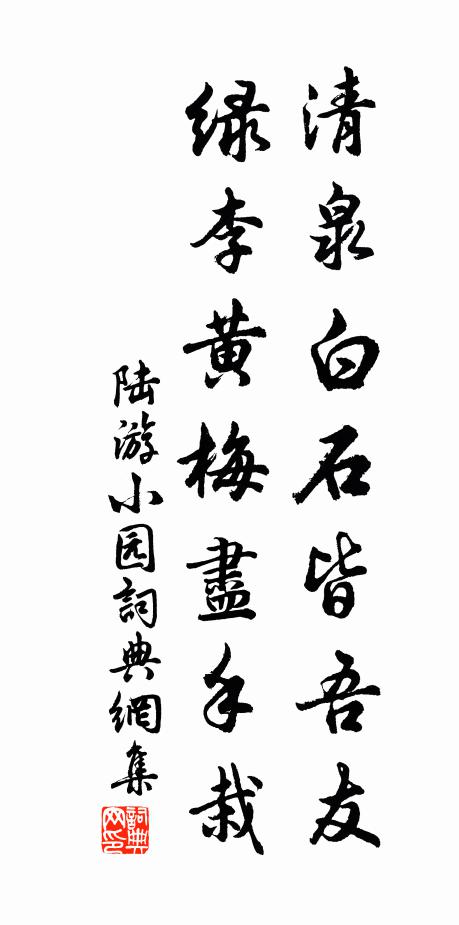 清泉白石皆吾友
绿李黄梅盡手栽
陆游小园詞典網集
詞典网印